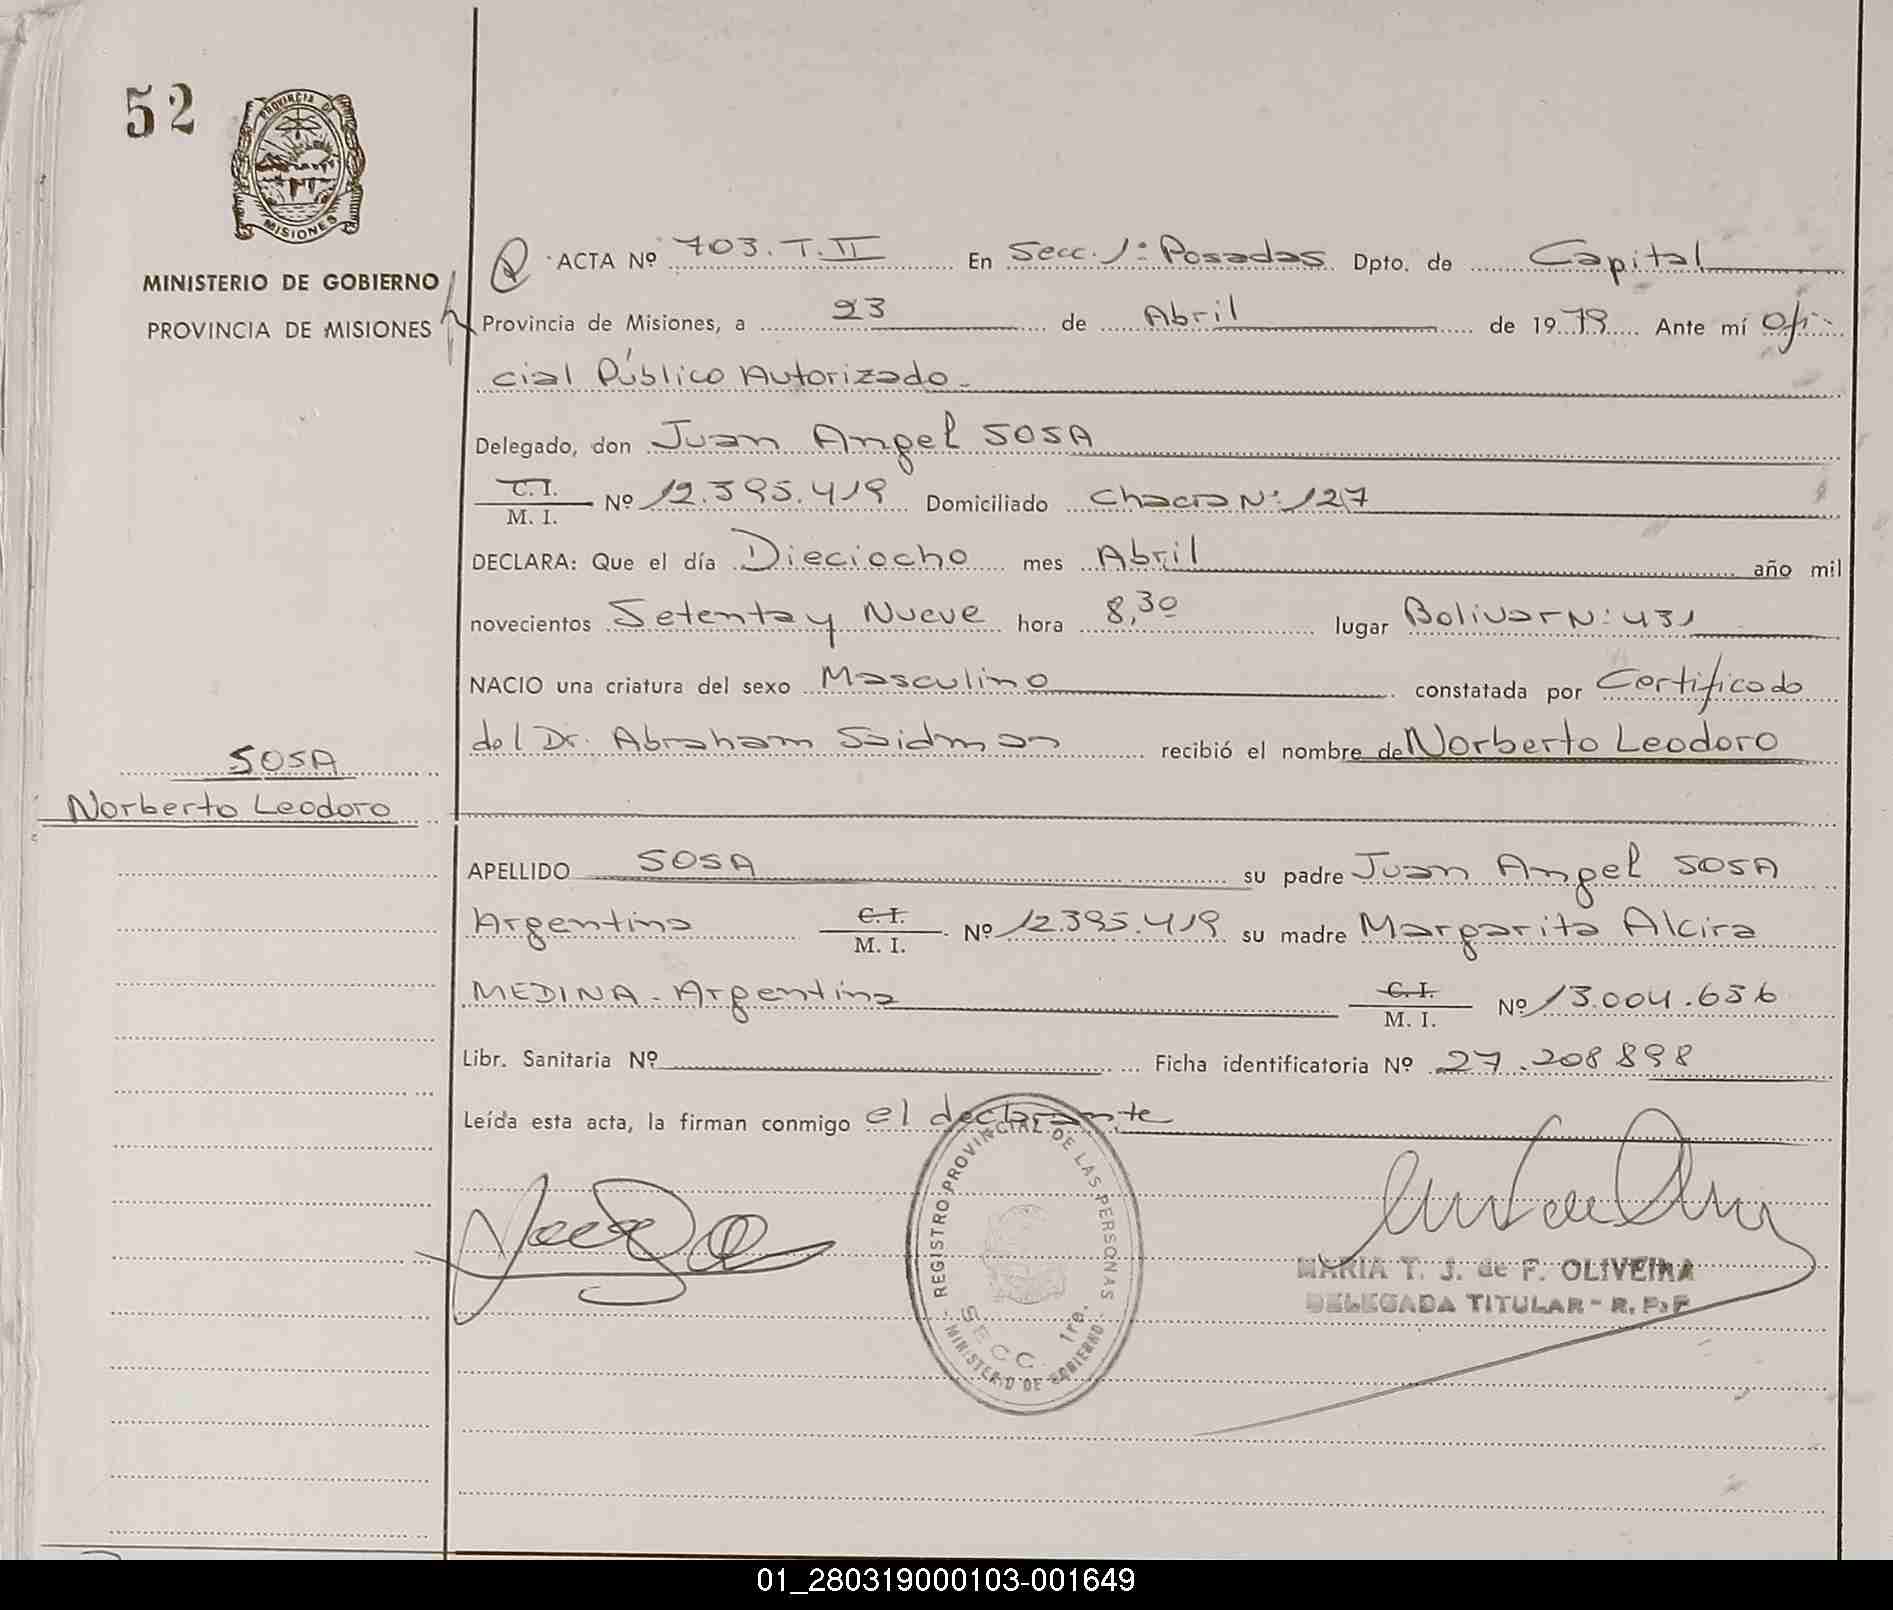 52
PROVINCIA DE
MISIONES
MINISTERIO DE GOBIERNO
PROVINCIA DE MISIONES
ACTA Nº 703. T. II En Secc. 1ª Posadas Dpto. de Capital
Provincia de Misiones, a 23 de Abril de 1979 Ante mí Ofi-
cial Público Autorizado.
Delegado, don Juan Angel SOSA
C. I.
M. I. Nº 12.395.419 Domiciliado Chacra Nº 127
DECLARA: Que el día Dieciocho mes Abril año mil
novecientos Setenta y Nueve hora 8,30 lugar Bolivar Nº 431
NACIO una criatura del sexo Masculino constatada por Certificado
del Dr. Abraham Saidman recibió el nombre de Norberto Leodoro
SOSA
Norberto Leodoro
APELLIDO SOSA su padre Juan Angel SOSA
Argentino C. I. M. I. Nº 12.395.419 su madre Margarita Alcira
MEDINA - Argentina C. I. M. I. Nº 13.004.636
Libr. Sanitaria Nº Ficha identificatoria Nº 27.208898
Leída esta acta, la firman conmigo el declarante
REGISTRO PROVINCIAL DE LAS PERSONAS
SECC. 1ra.
MINISTERIO DE GOBIERNO
MARIA T. J. de F. OLIVEIRA
DELEGADA TITULAR - R. P. P.
01_280319000103-001649